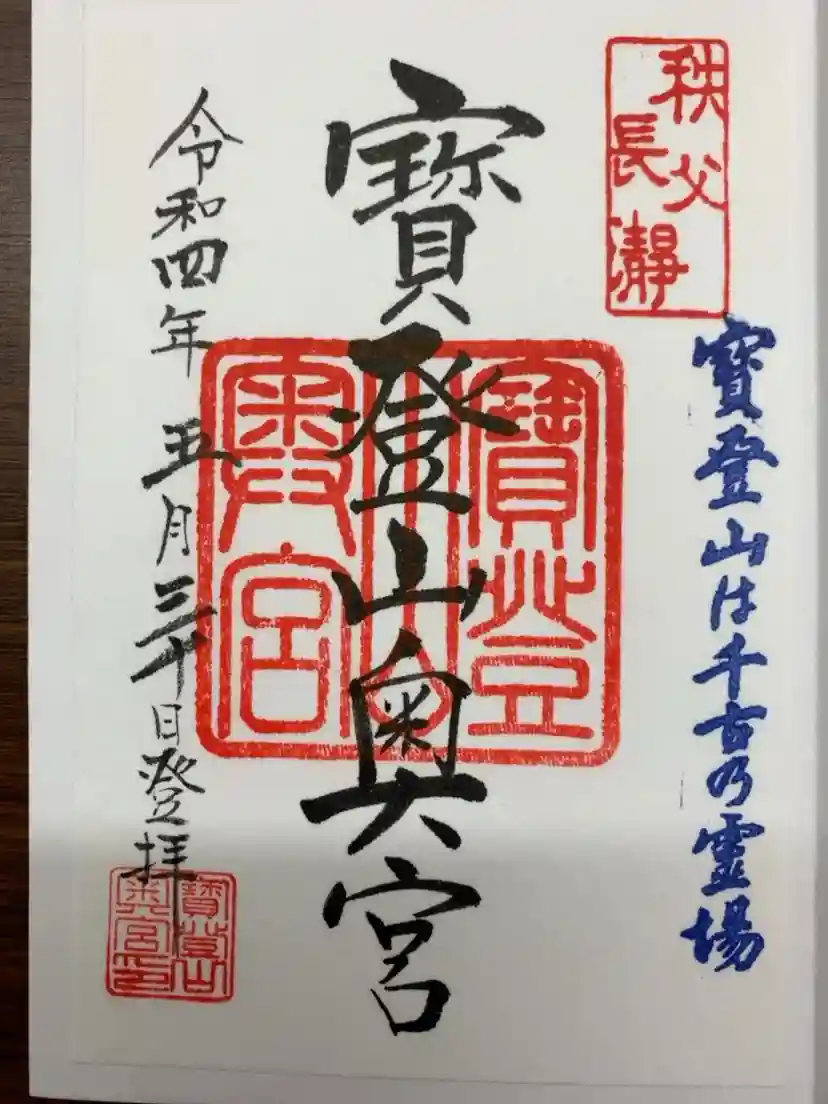 秩父
長瀞
寶登山は千古乃霊場
寶登山奥宮
寶登山
奥宮
令和四年 五月三十日登拝
寶登山
奥宮印